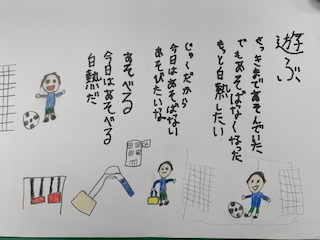 遊ぶ
さっきまであそんでいた
でもあそばなくなった
もっと白熱したい
じゅくだから
今日はあそばない
あそびたいな
あそべる
今日はあそべる
白熱だ